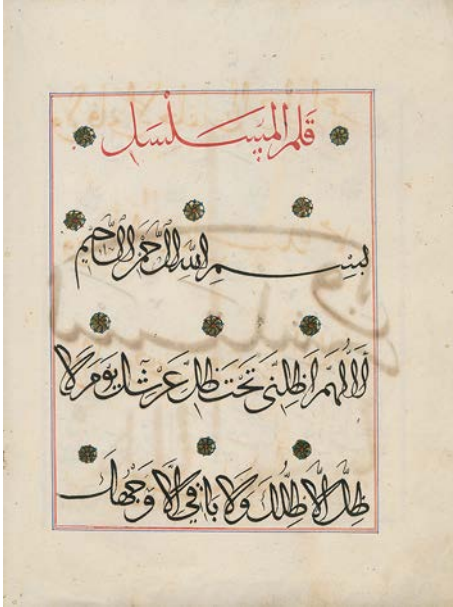 قلم المسلسل
بسم الله الرحمن الرحيم
اللهم اظلني تحت ظل عرشك يوم لا
ظل الا ظلك ولا باقي الا وجهك